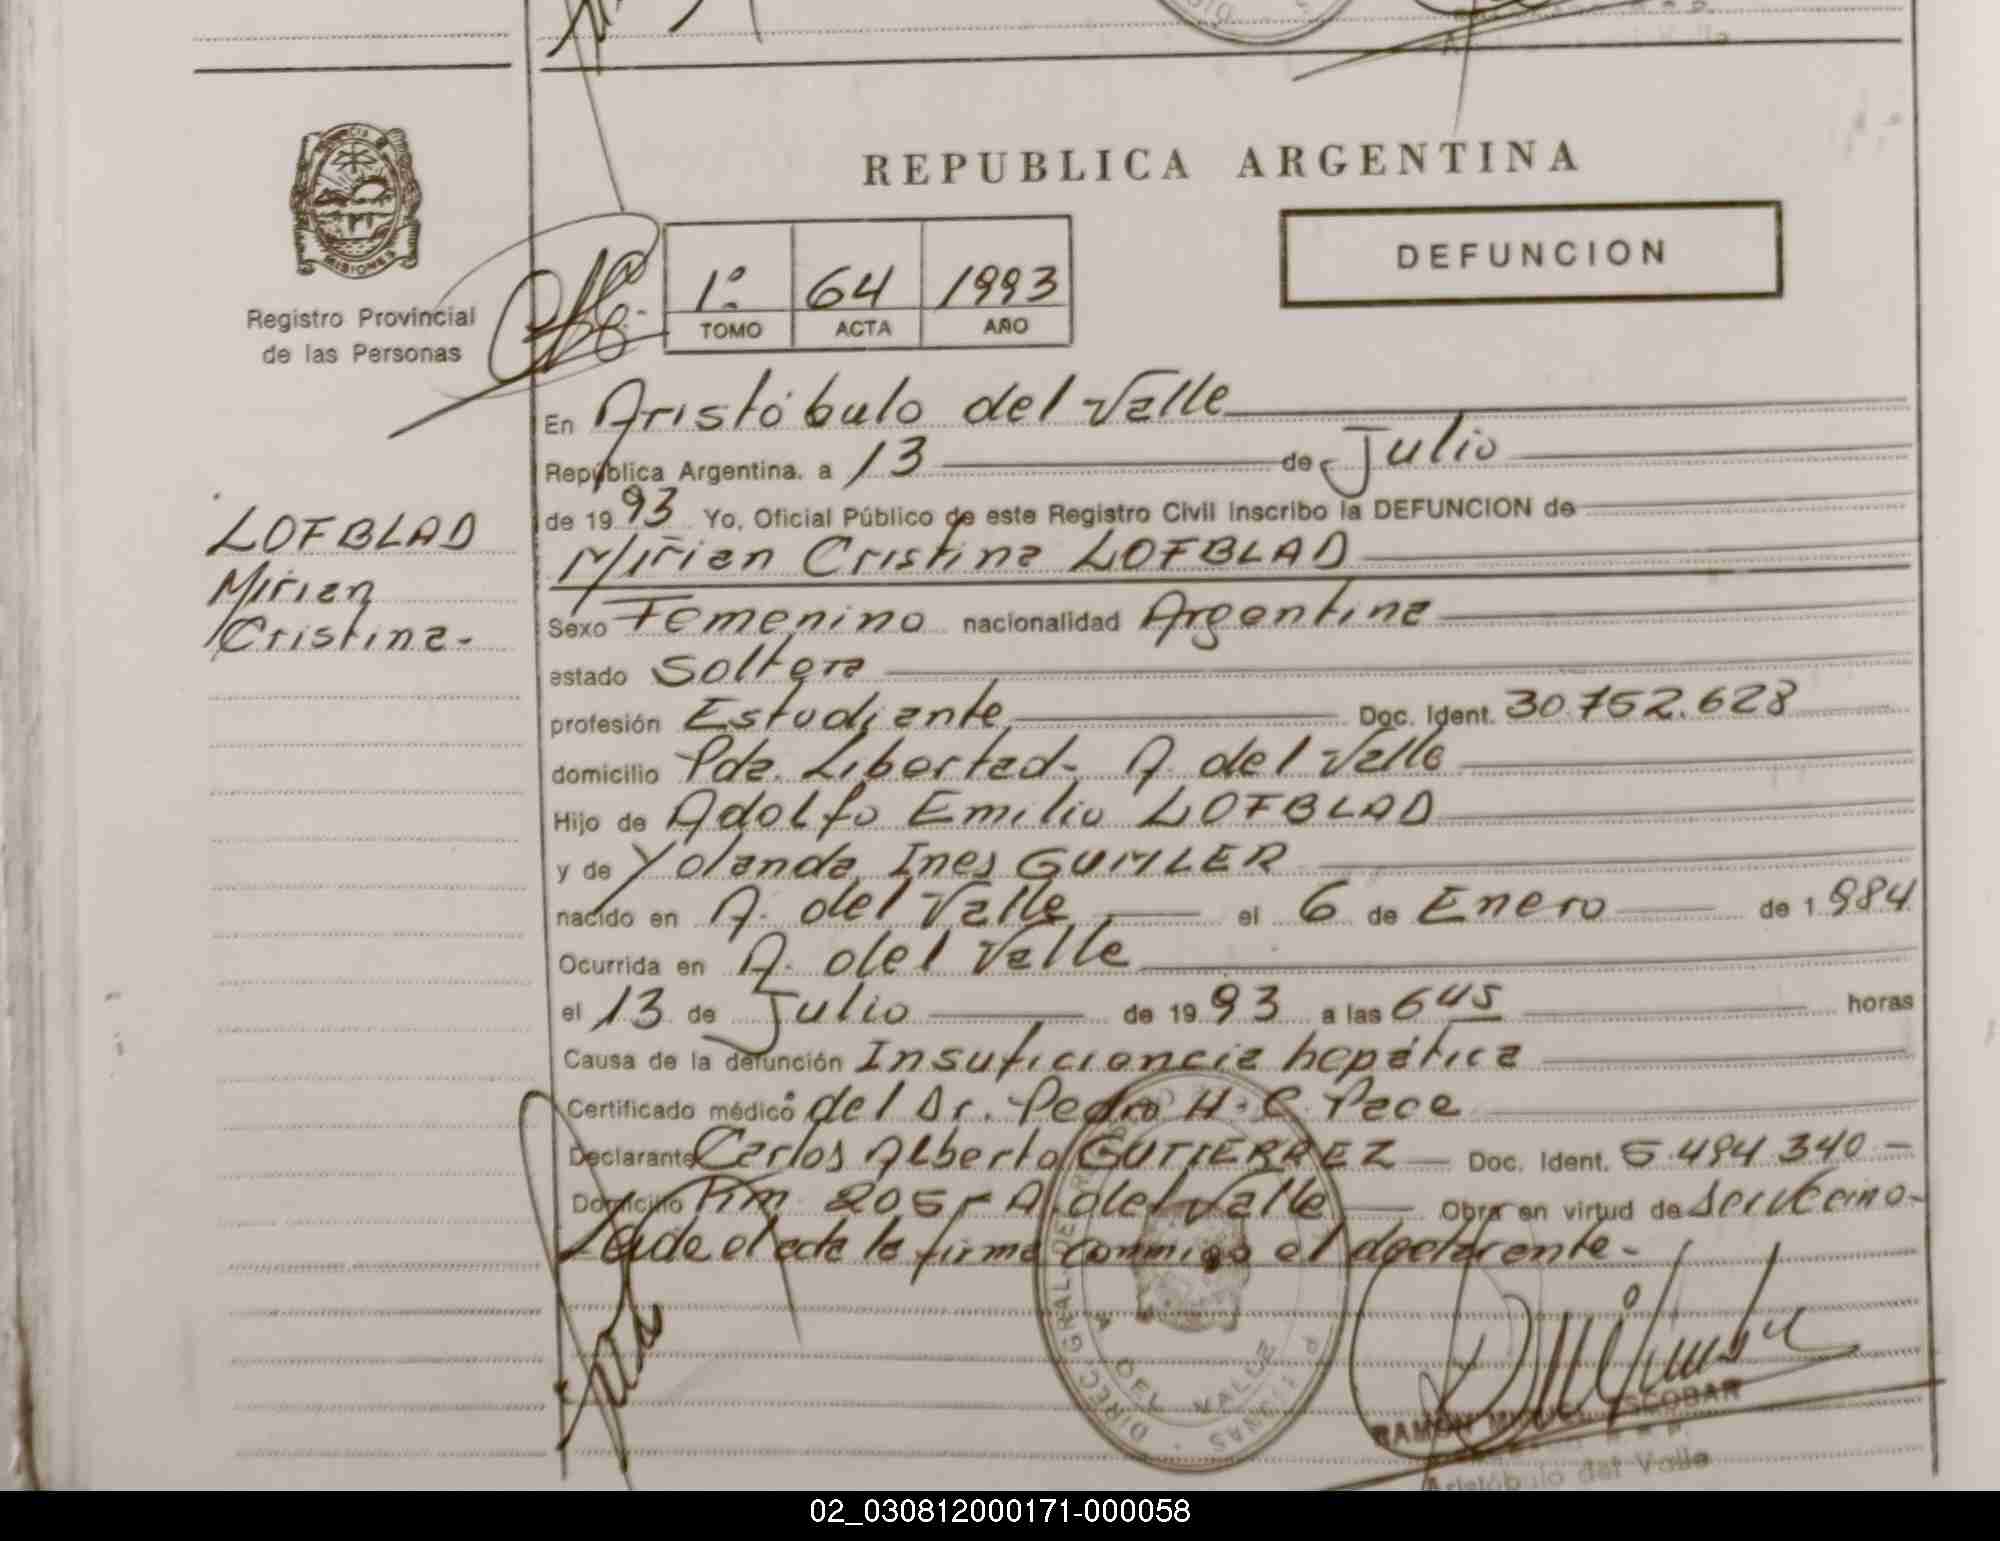 REPUBLICA ARGENTINA
DEFUNCION
MISIONES
Registro Provincial
de las Personas
1º 64 1993
TOMO ACTA AÑO
En Aristóbulo del Valle
República Argentina. a 13 de Julio
de 1993 Yo, Oficial Público de este Registro Civil inscribo la DEFUNCION de
Mirian Cristina LOFBLAD
LOFBLAD
Mirian
Cristina-
Sexo Femenino nacionalidad Argentina
estado Soltera
profesión Estudiante Doc. Ident. 30.752.628
domicilio Pda. Libertad- A. del Valle
Hijo de Adolfo Emilio LOFBLAD
y de Yolanda Ines GUMLER
nacido en A. del Valle el 6 de Enero de 1984
Ocurrida en A. del Valle
el 13 de Julio de 1993 a las 6 45 horas
Causa de la defunción Insuficiencia hepática
Certificado médico del Dr. Pedro H. C. Pace
Declarante Carlos Alberto GUTIERREZ Doc. Ident. 5.494.340-
Domicilio Km 205- A. del Valle Obra en virtud de ser vecino-
Leida el acta la firma conmigo el declarante-
DEL VALLE
RAMON MIGUEL ESCOBAR
Aristóbulo del Valle
02_030812000171-000058